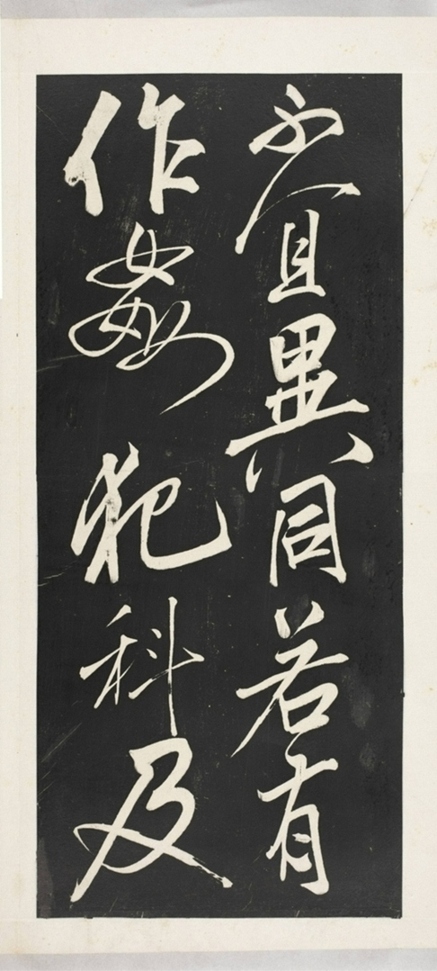 不宜異同若有
作姦犯科及